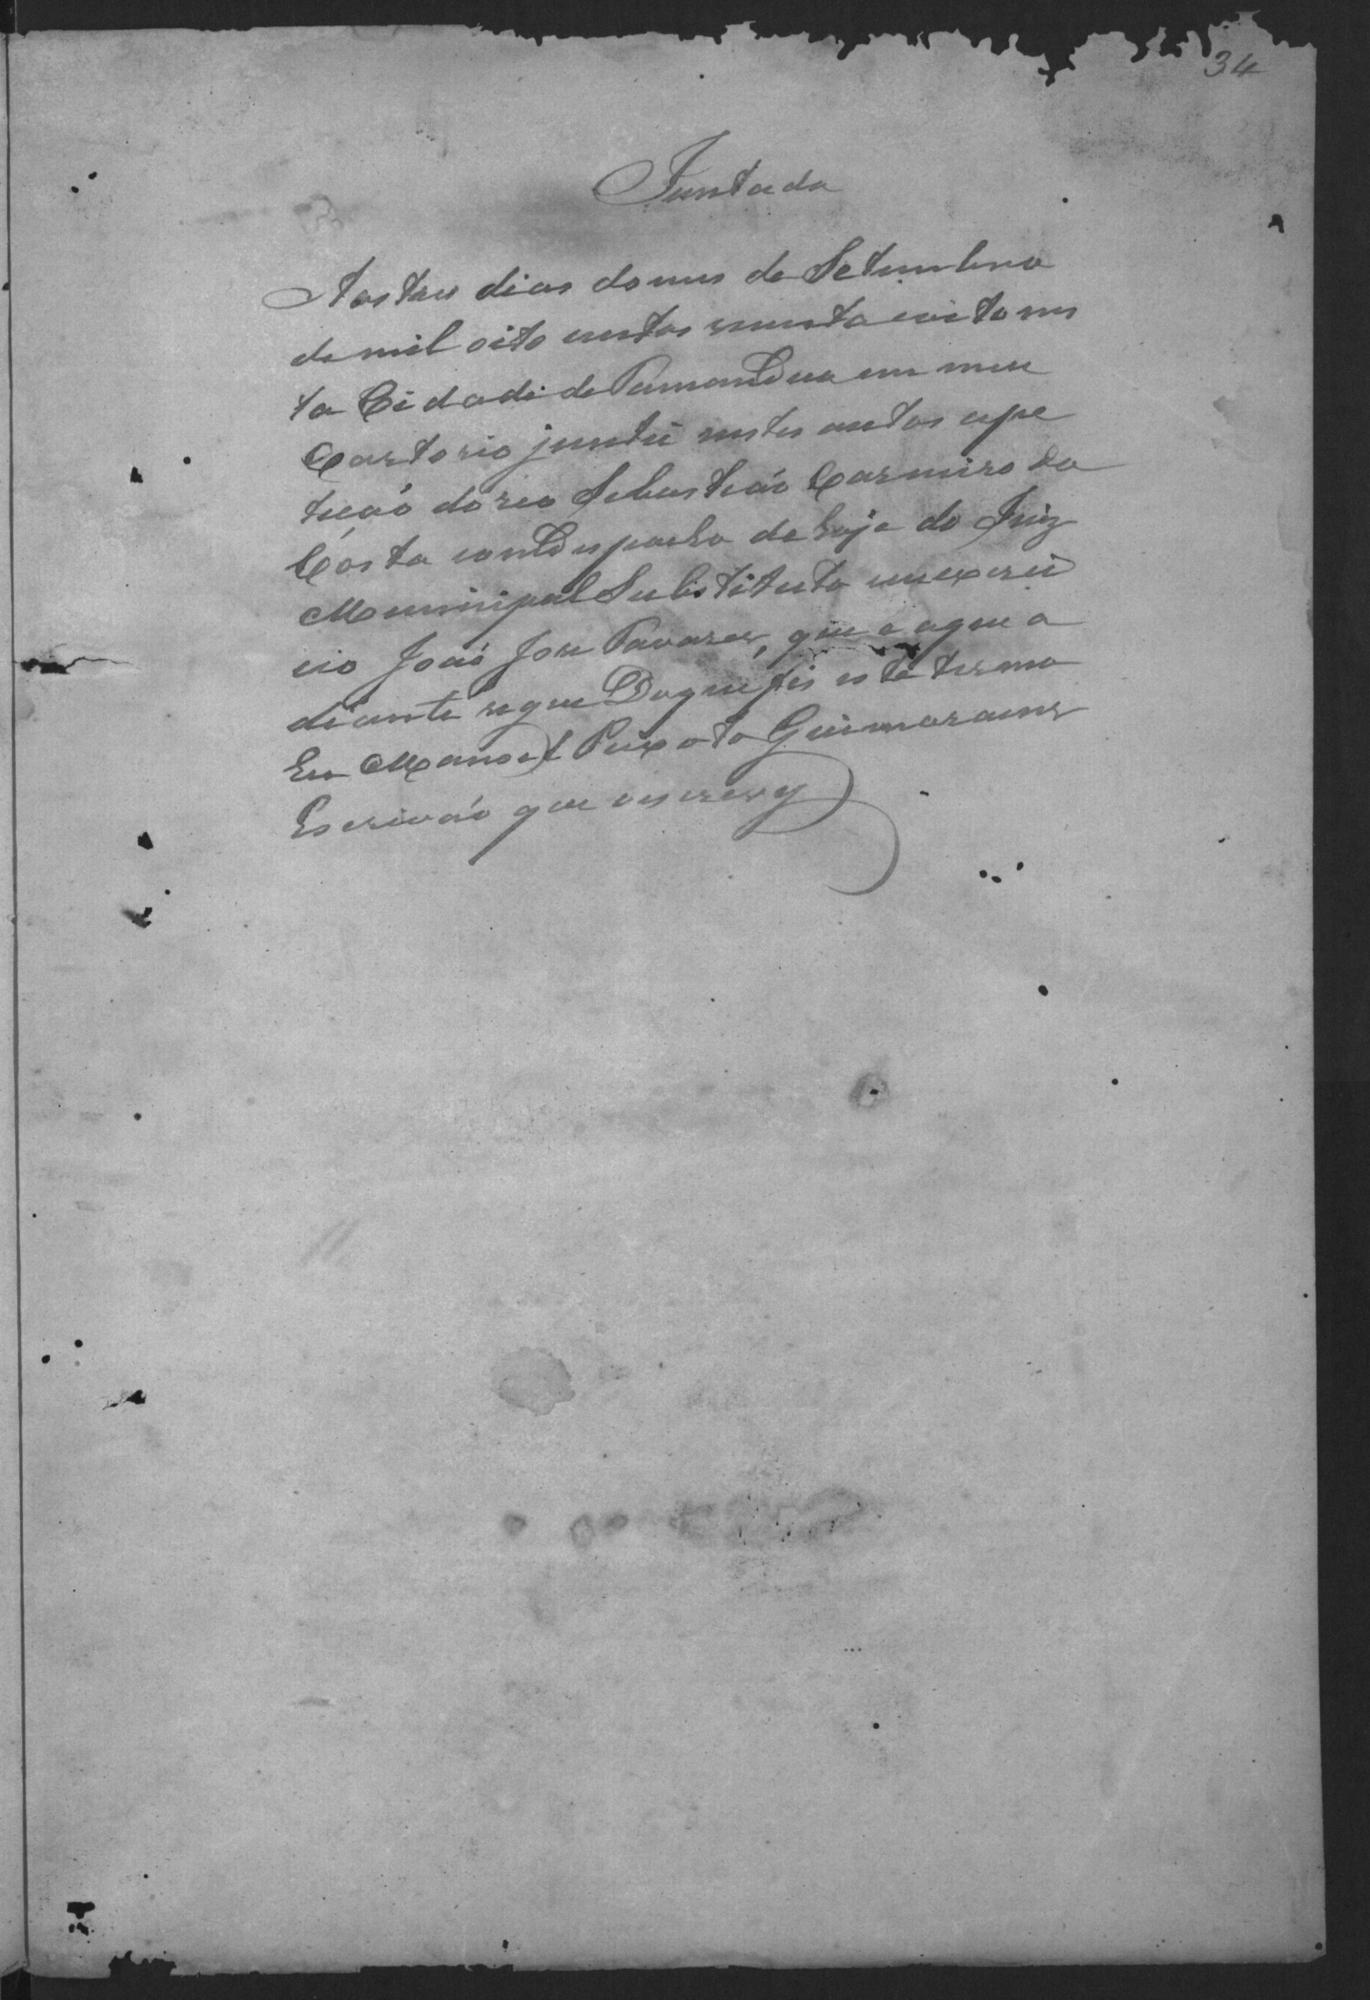 34
Juntada
Aos tres dias do mes de Setembro
de mil oito centos e oito nes
ta Cidade de Tamandua em meu
Cartorio juntei nestes autos a pe
ticaó do reo Sebastiaó Casmiro da
Costa com Despacho de hoje do Juiz
Municipal Substituto em exerci
cio Joaó Jose Tavares, que e aqui a
diante segue Do que fis este termo
Eu Manoel Peixoto Guimaraens
Escrivaó que escrevy